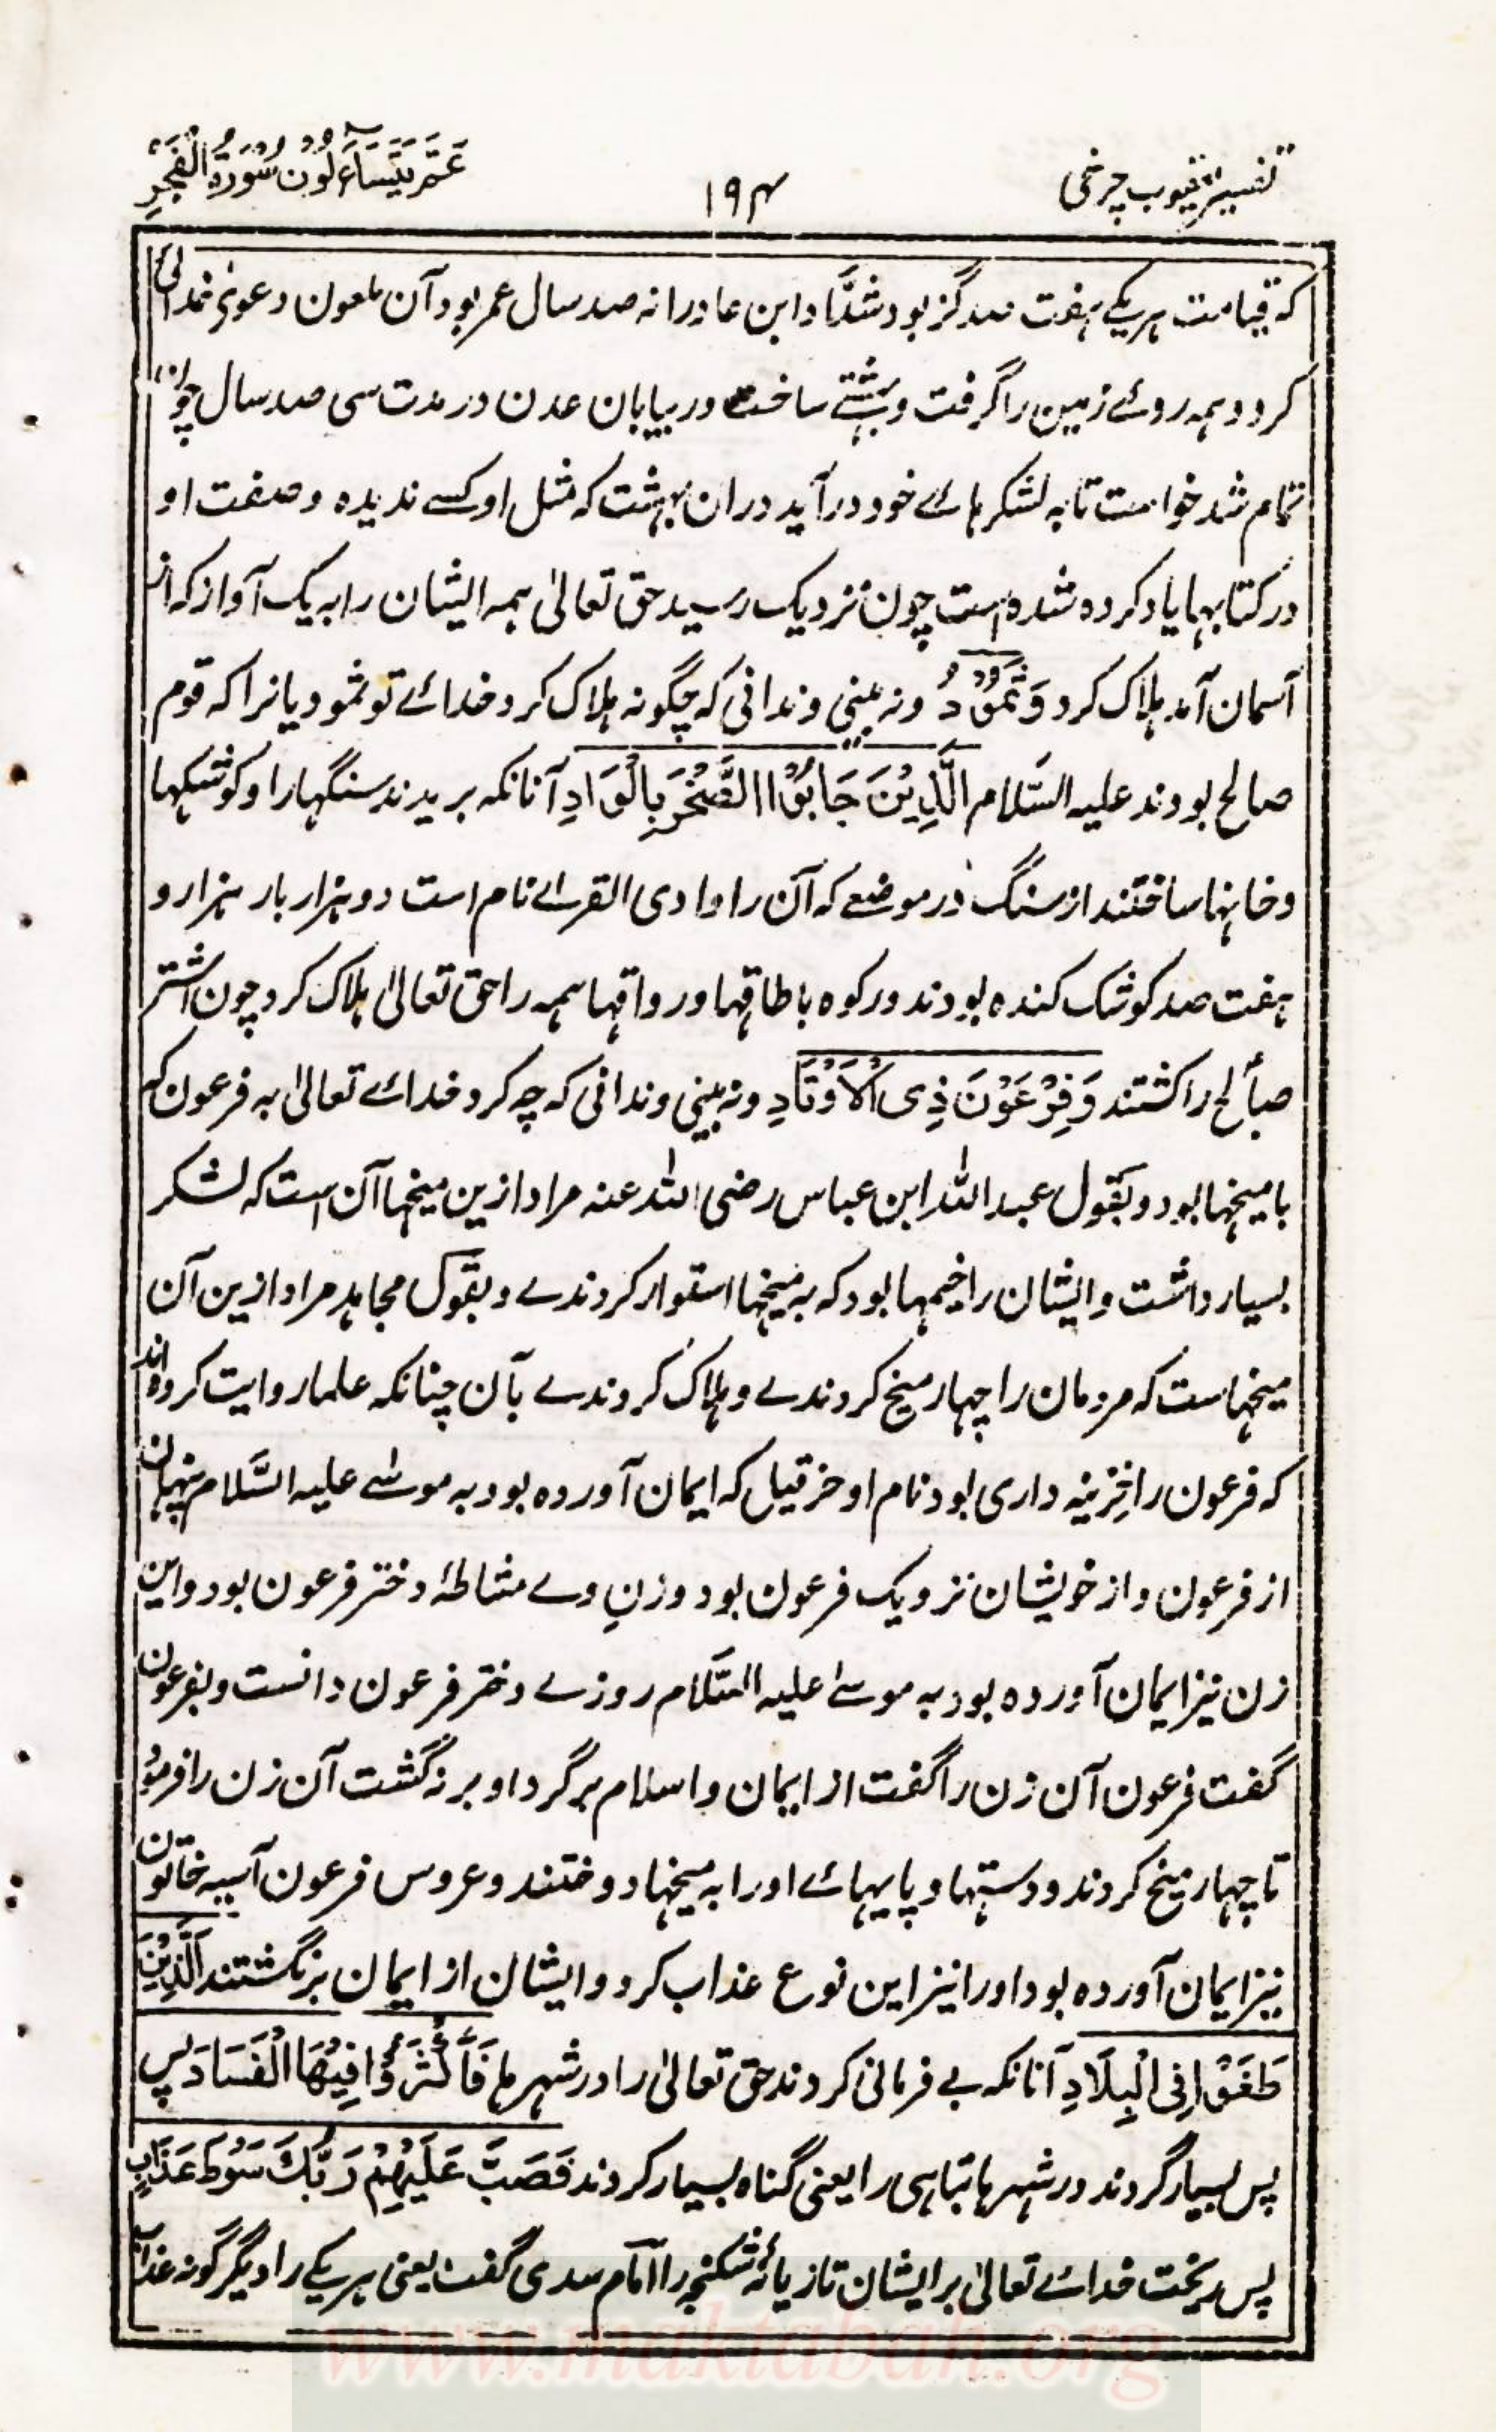 تفسیر یعقوب چرخی
۱۹۴
عَمَّ يَتَسَاءَلُونَ سُورَةُ الْفَجْرِ
که قیامت هریکے هفت صد گز بود شدّاد ابن عاد را نه صد سال عمر بود آن ملعون دعویٰ خدائی
کرد و همه روئے زمین را گرفت و بهشتے ساخت در بیابان عدن در مدت سی صد سال چون
تمام شد خواست تا به لشکرهائے خود در آید دران بهشت که مثل او کسے ندیده و صفت او
در کتابها یاد کرده شده است چون نزدیک رسید حق تعالیٰ همه ایشان را به یک آواز که از
آسمان آمد هلاک کرد وَثَمُوْدُ و نه بینی و ندانی که چگونه هلاک کرد خدائے تو ثمودیانرا که قوم
صالح بودند علیه السَّلام الَّذِيْنَ جَابُوْا الصَّخْرَ بِالْوَادِ آنانکه بریدند سنگهارا و کوشکها
و خانها ساختند از سنگ در موضعے که آن را وادی القرےٰ نام است دو هزار بار هزار و
هفت صد کوشک کنده بودند در کوه با طاقها و رواقها همه را حق تعالیٰ هلاک کرد چون اشتر
صالح را کشتند وَفِرْعَوْنَ ذِی الْاَوْتَادِ و نه بینی و ندانی که چه کرد خدائے تعالیٰ به فرعون که
با میخها بود و بقول عبداللہ ابن عباس رضی اللہ عنه مراد ازین میخها آن است که لشکر
بسیار داشت و ایشان را خیمها بود که به میخها استوار کردندے و بقول مجاهد مراد ازین آن
میخهاست که مردمان را چهار میخ کردندے و هلاک کردندے بآن چنانکه علما روایت کرده اند
که فرعون را خزینه داری بود نام او خرقیل که ایمان آورده بود به موسےٰ علیه السَّلام پنهان
از فرعون و از خویشان نزدیک فرعون بود و زنِ وے مشاطۂ دختر فرعون بود و این
زن نیز ایمان آورده بود به موسےٰ علیه السَّلام روزے دختر فرعون دانست و بفرعون
گفت فرعون آن زن را گفت از ایمان و اسلام برگرد او برنگشت آن زن را فرمود
تا چهار میخ کردند و دستها و پایهائے او را به میخها دوختند و عروس فرعون آسیه خاتون
نیز ایمان آورده بود اورا نیز این نوع عذاب کرد و ایشان از ایمان برنگشتند الَّذِيْنَ
طَغَوْا فِی الْبِلَادِ آنانکه بے فرمانی کردند حق تعالیٰ را در شهرها فَأَكْثَرُوْا فِيْهَا الْفَسَادَ پس
پس بسیار کردند در شهرها تباهی را یعنی گناه بسیار کردند فَصَبَّ عَلَيْهِمْ رَبُّكَ سَوْطَ عَذَابٍ
پس ریخت خدائے تعالیٰ بر ایشان تازیانهٔ شکنجه را امام سدی گفت یعنی هریکے را دیگر گونه عذاب
www.maktabah.org